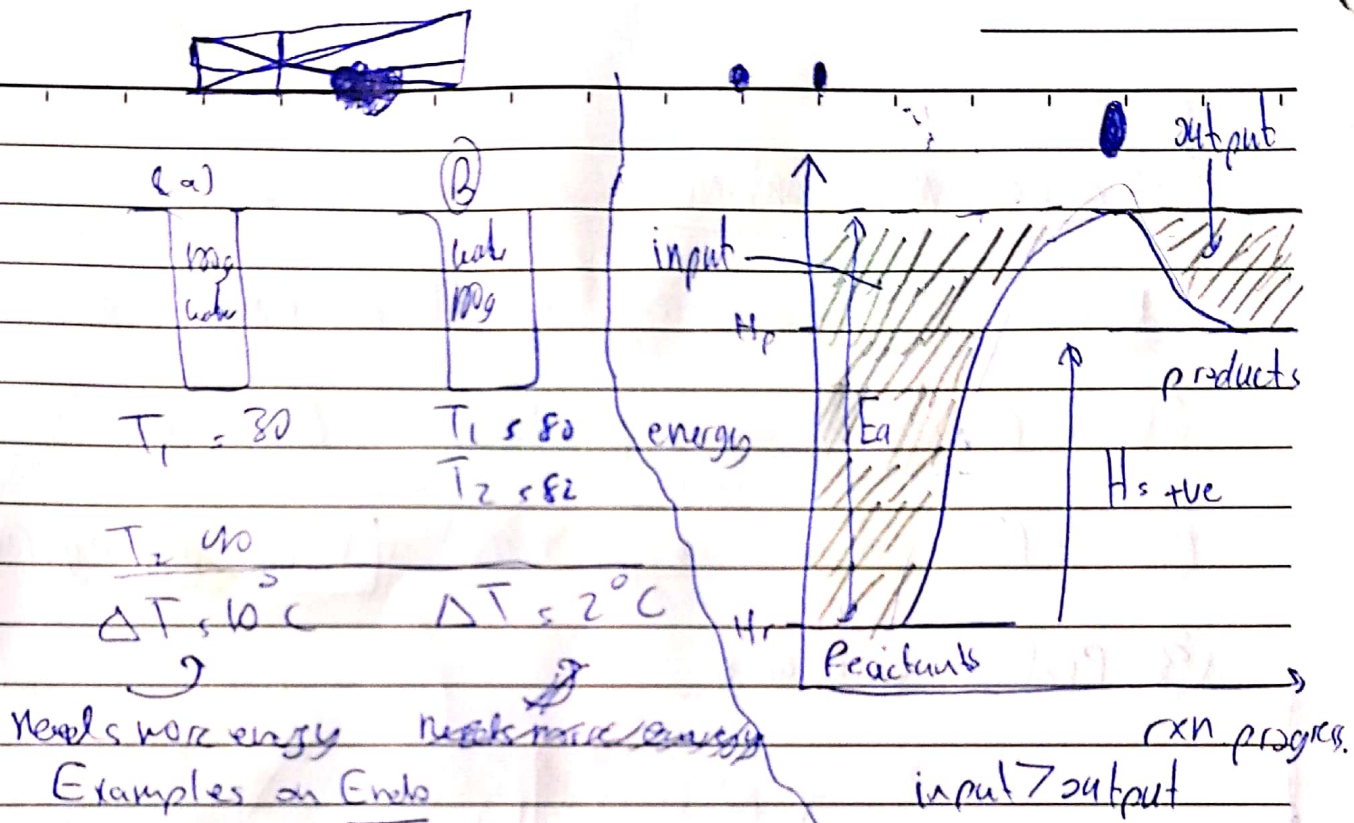 (a)
100g
water
T₁ = 30
T₂ 40
ΔT = 10°C
Needs more energy
B
water
100g
T₁ = 80
T₂ = 82
ΔT = 2°C
Examples on Endo
output
input
Hp
products
energy
Ea
H = +ve
Hr
Reactants
rxn progress.
input > output